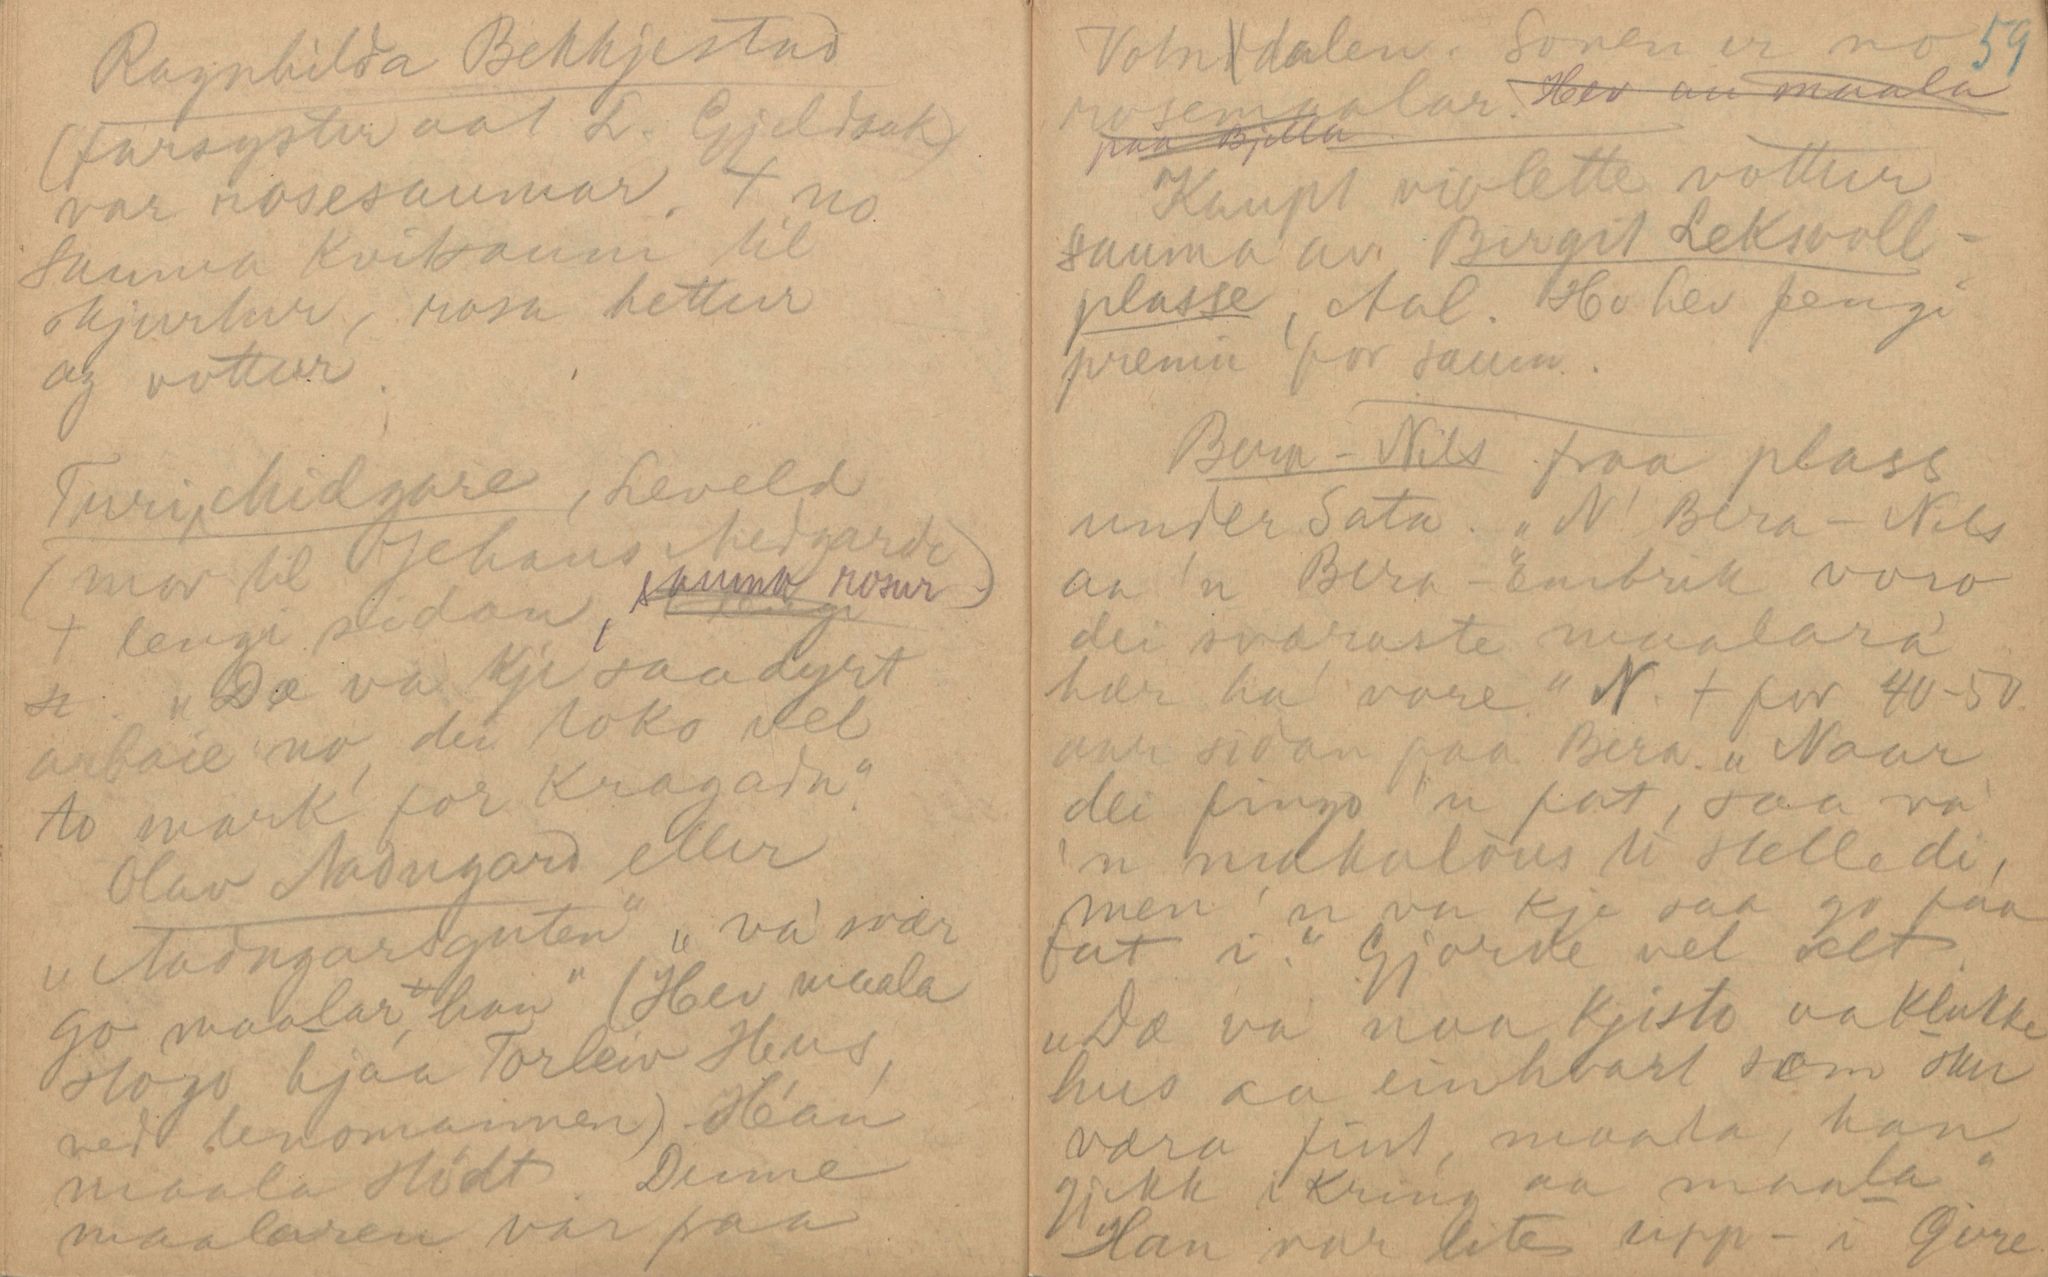 Ragnhilda Bekkjestad
(farsyster aat L. Gjeldsak)
var rosesaumar. + no
Sauma Kvitsaum til
skjurtur, rosa hettur
og vottur.
Turi Midgare, Leveld
(mor til Jehans Medgarde)
+ lengi sidan, sauma rosur
"Dæ va kje saa dyrt
arbaie no, dei toko vel
to mark for Kragadn".
Olav Nadngard eller
"Nadngardguten" "va' svær
go maalar, han" (Hev maala
stogo hjaa Torleiv Hus,
ved lensmannen) Han
maala stødt. Denne
maalaren var paa
59
Votndalen. Sonen er no
rosemaalar. Hev au maala
paa Bjella
Kaupt violette vottur
sauma av Birgit Leksvoll-
plasse, Aal. Ho hev fengi
premii for saum.
Bera-Nils fraa plass
under Sata. "N' Bera-Nils
aa 'n Bera-Embrik voro
dei sværaste maalara
hær ha' vore" N. + for 40-50
aar sidan paa Bera. "Naar
dei fingo 'n fat, saa va'
'n makalöus te stelle di,
men 'n va kje saa go faa
fat i." Gjorde vel allt
"Dæ va' naa Kjisto aa Klukke
hus aa einhvart som sku
væra fint, maala, han
gjekk ikring aa maala"
Han var lite upp-i Gure